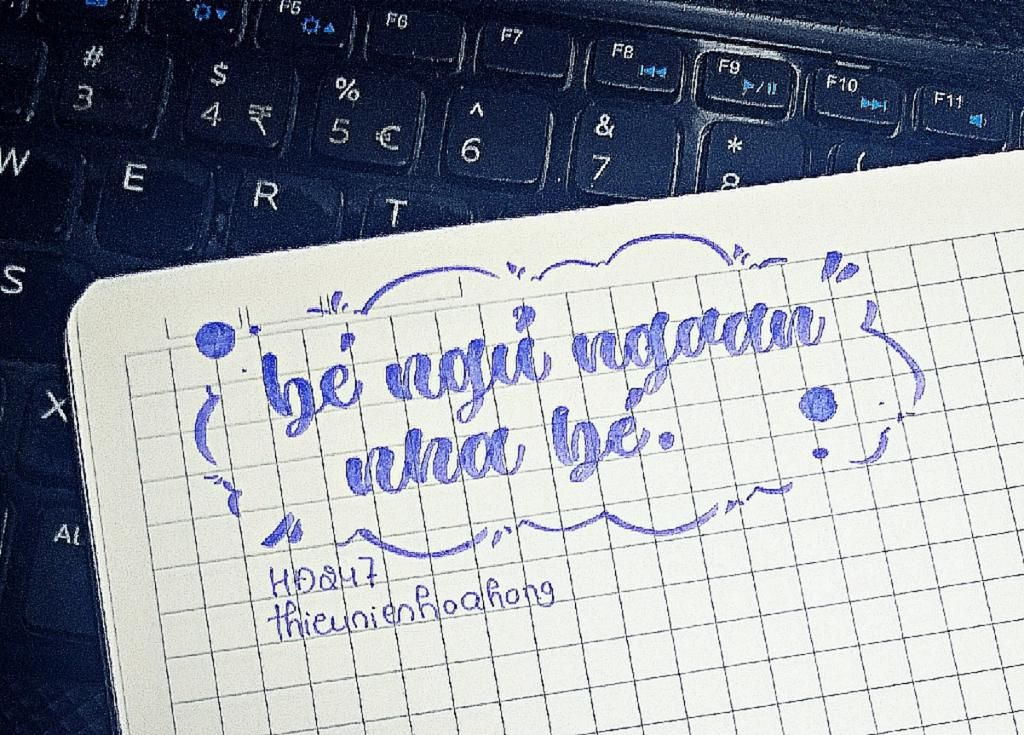 F5 F6 F7 F8 F9 F10 F11
# $ % ^ & * (
3 4 ₹ 5 € 6 7 8
W E R T
S
X
Al
bé ngủ ngoan
nha bé.
HĐ247
thieunienhoahong